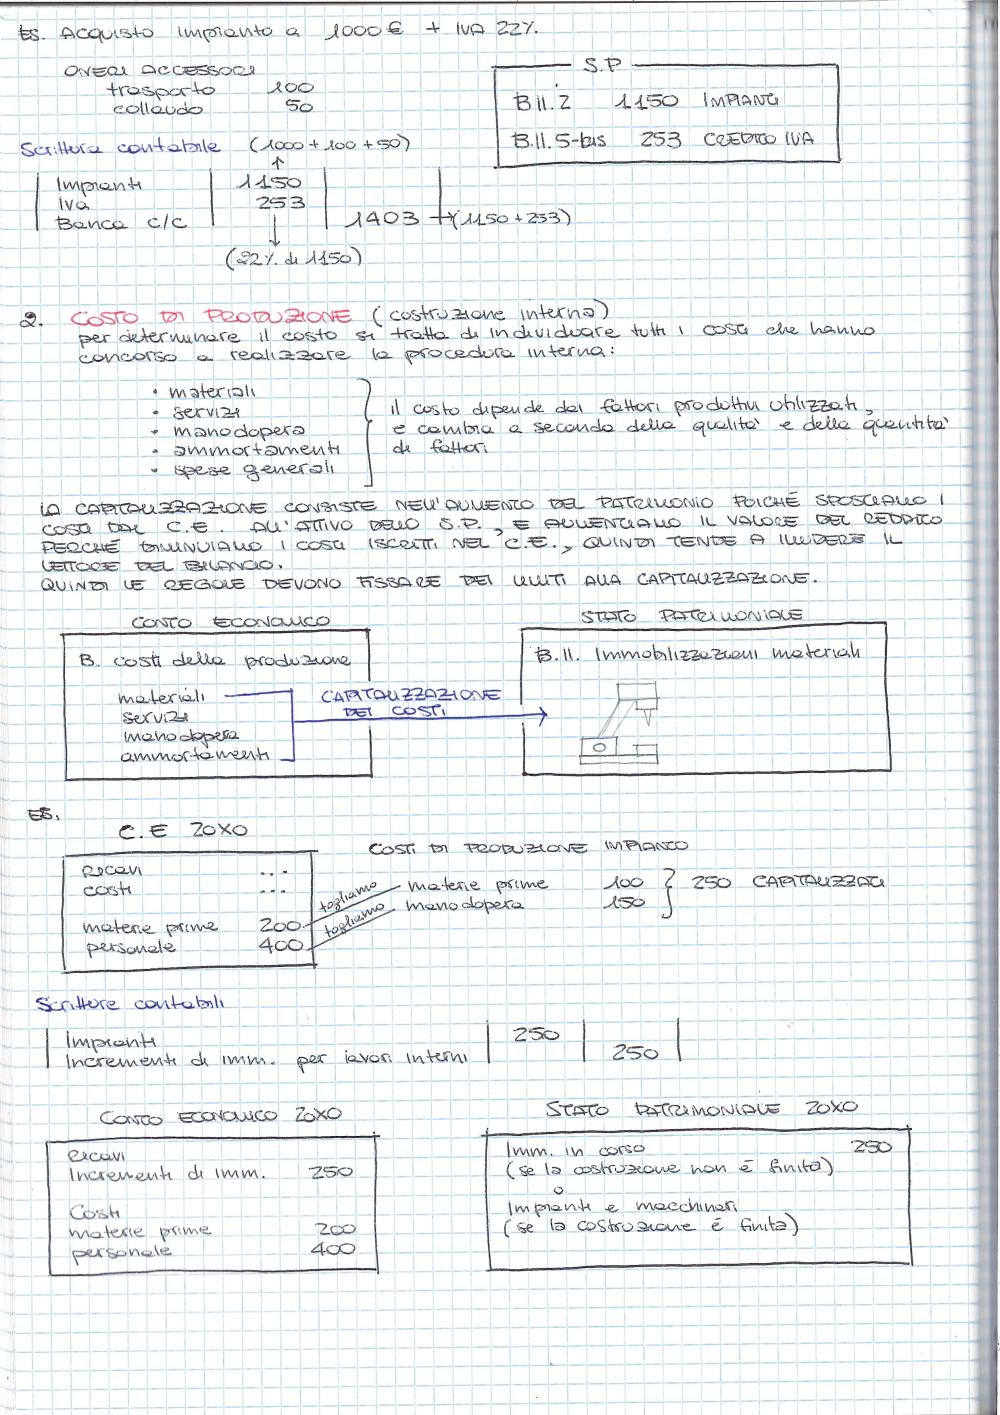 ES. Acquisto impianto a 1000 € + IVA 22%.
ONERI ACCESSORI
trasporto 100
collaudo 50
S.P
B II.2 1150 IMPIANTI
B.II.5-bis 253 CREDITO IVA
Scrittura contabile (1000 + 100 + 50)
Impianti 1150
IVA 253
Banca c/c 1403 → (1150 + 253)
(22% di 1150)
2. COSTO DI PRODUZIONE (costruzione interna)
per determinare il costo si tratta di individuare tutti i costi che hanno
concorso a realizzare la procedura interna:
• materiali
• servizi
• manodopera
• ammortamenti
• spese generali
il costo dipende dai fattori produttivi utilizzati,
e cambia a seconda della qualità e della quantità
di fattori
LA CAPITALIZZAZIONE CONSISTE NELL'AUMENTO DEL PATRIMONIO POICHÉ SPOSTIAMO I
COSTI DAL C.E. ALL'ATTIVO DELLO S.P., E AUMENTIAMO IL VALORE DEL REDDITO
PERCHÉ DIMINUIAMO I COSTI ISCRITTI NEL C.E., QUINDI TENDE A ILLUDERE IL
LETTORE DEL BILANCIO.
QUINDI LE REGOLE DEVONO FISSARE DEI LIMITI ALLA CAPITALIZZAZIONE.
CONTO ECONOMICO
B. costi della produzione
materiali
servizi
manodopera
ammortamenti
CAPITALIZZAZIONE
DEI COSTI
STATO PATRIMONIALE
B.II. Immobilizzazioni materiali
ES.
C.E 20X0
Ricavi ...
costi ...
materie prime 200
personale 400
COSTI DI PRODUZIONE IMPIANTO
togliamo materie prime 100
togliamo manodopera 150
250 CAPITALIZZATI
Scritture contabili
Impianti 250
Incrementi di imm. per lavori interni 250
CONTO ECONOMICO 20X0
Ricavi
Incrementi di imm. 250
Costi
materie prime 200
personale 400
STATO PATRIMONIALE 20X0
Imm. in corso 250
(se la costruzione non è finita)
o
Impianti e macchinari
(se la costruzione è finita)